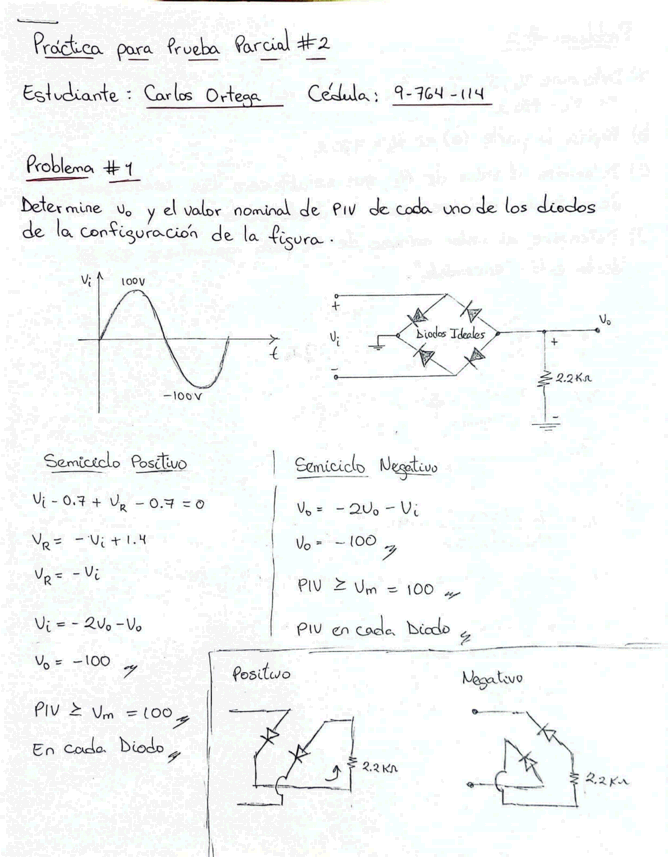 Práctica para Prueba Parcial #2
Estudiante: Carlos Ortega Cédula: 9-764-114
Problema #1
Determine Vo y el valor nominal de PIV de cada uno de los diodos
de la configuración de la figura.
Vi
100V
t
-100V
+
Vi
-
Diodos Ideales
Vo
+
2.2KΩ
-
Semiciclo Positivo
Vi - 0.7 + VR - 0.7 = 0
VR = -Vi + 1.4
VR = -Vi
Vi = -2Vo - Vo
Vo = -100
PIV ≥ Vm = 100
En cada Diodo
Semiciclo Negativo
Vo = -2Vo - Vi
Vo = -100
PIV ≥ Vm = 100
PIV en cada Diodo
Positivo
2.2KΩ
Negativo
2.2KΩ